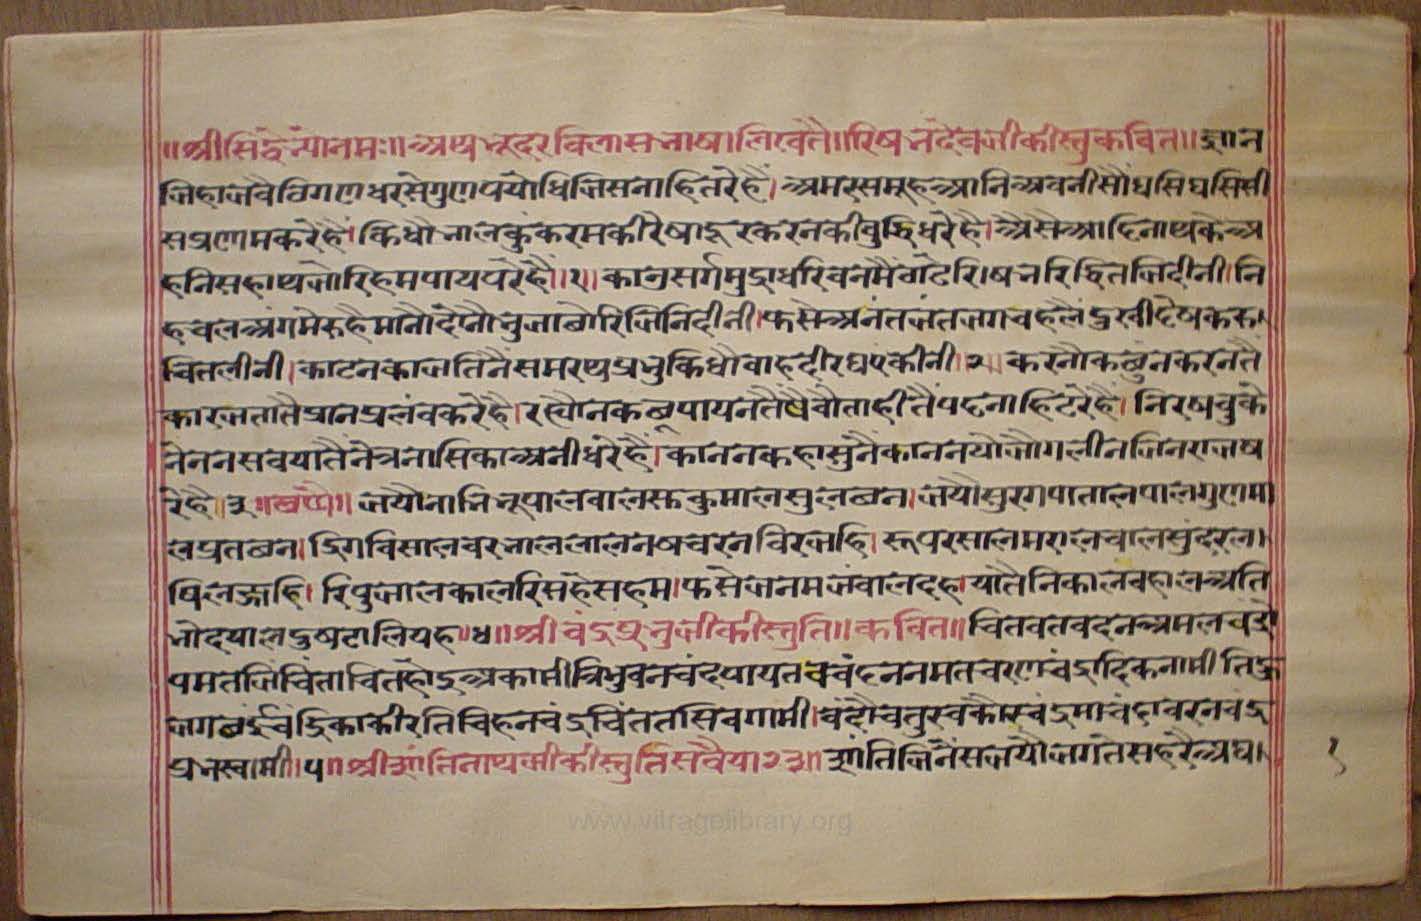 ॥श्रीसिद्धेन्यानमः॥अथभूदरविलासभाषालिखंतै॥रिषभदेवजीकीस्तुकवित॥ज्ञान
जिहाजवैठिगणधरसेगुणपयोधिजिसनाहितरेहै।अमरसमूहआनिअवनीसौंघसिघसिसी
सप्रणामकरेहै।किधौभालकुंकरमकीरेषादूरकरनकीवुद्धिधरेहै।अैसेआदिनाथकेअ
हनिसहाथजोरिहमपायपरेहै॥१।काउसर्गमुद्राधरिवनमैंठाढेरिषभरिद्धितजिदीनी।नि
हचलअंगमेरुहैमानौदोनौभुजाछोरिजिनिदीनी।फसेअनंतजंतजगचहलेंदुखीदेषकरु
चितलीनी।काटनकाजतिनैसमरथप्रभुकिधौवाहदीरघएकीनी।२॥करनौकछुंनकरनतै
कारजतातैप्रानप्रलंवकरेहै।रह्यौनकछूपायनतैंपैवौताहीतैंपदनाहिटरेहै।निरषचुके
नेननसवयातैनेत्रनासिकाअनीधरेहै।काननकहासुनैकाननयोजोगलीनजिनराजष
रेहै॥३॥छप्पै॥जयौनाभिभूपालवालसुकुमालसुलछन।जयौसुरगपातालपालगुणमा
लप्रतछन।द्रिगविसालवरभाललालनषचरनविरजहि।रूपरसालमरालचालसुंदरल।
षिलज्जहि।रिपुजालकालरिसहेसहम।फसेजनमजंवालदह।यातैनिकालवेहालअति
भोदयालदुषटालियह॥४॥श्रीचंद्रप्रभुजीकीस्तुति॥कवित॥चितवतवदनअमलचंद्रो
पमतजिचिंताचितहोऽअकामीत्रिभुवनचंदपायतपचंदननमतचरणचंद्रादिकनामीतिहु
जगछईचंद्रिकाकीरतिचिहनचंद्रचिंततसिवगामी।वंदौचतुरचकौरचंद्रमाचंदावरनचंद्र
प्रभस्वामी।५॥श्रीशांतिनाथजीकीस्तुतिसवैया२३॥शांतिजिनेसजयौजगतेसहरैअघा
१
www.vitragelibrary.org